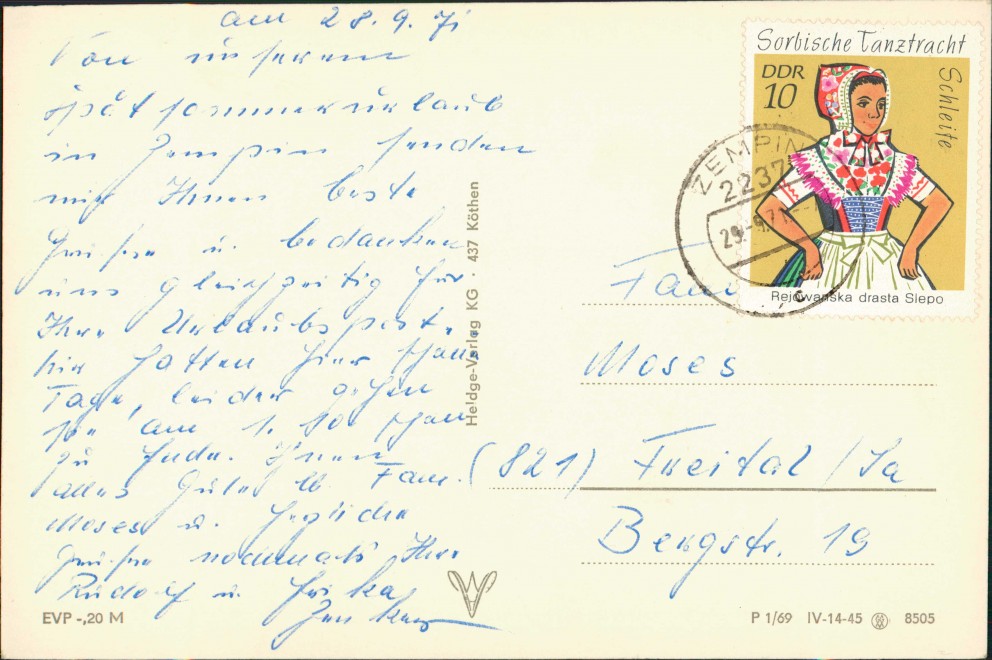 am 28.9.71
Von unserem
Spätsommerurlaub
in Zempin senden
wir Ihnen beste
Grüße u. bedanken
uns gleichzeitig für
Ihre Urlaubspost.
Wir hatten hier schöne
Tage, leider gehen
sie am 1. 10 schon
zu Ende. Ihnen
alles Gute lb. Fam.
Moses u. herzliche
Grüße nochmals Ihre
Rudolf u. Erika
EVP -,20 M
Heldge-Verlag KG · 437 Köthen
Sorbische Tanztracht
DDR
10
Schleife
Rejowańska drasta Slepo
ZEMPIN
2237
29.-9.71
Fam
Moses
(821) Freital / Sa
Bergstr. 19
P 1/69 IV-14-45 8505